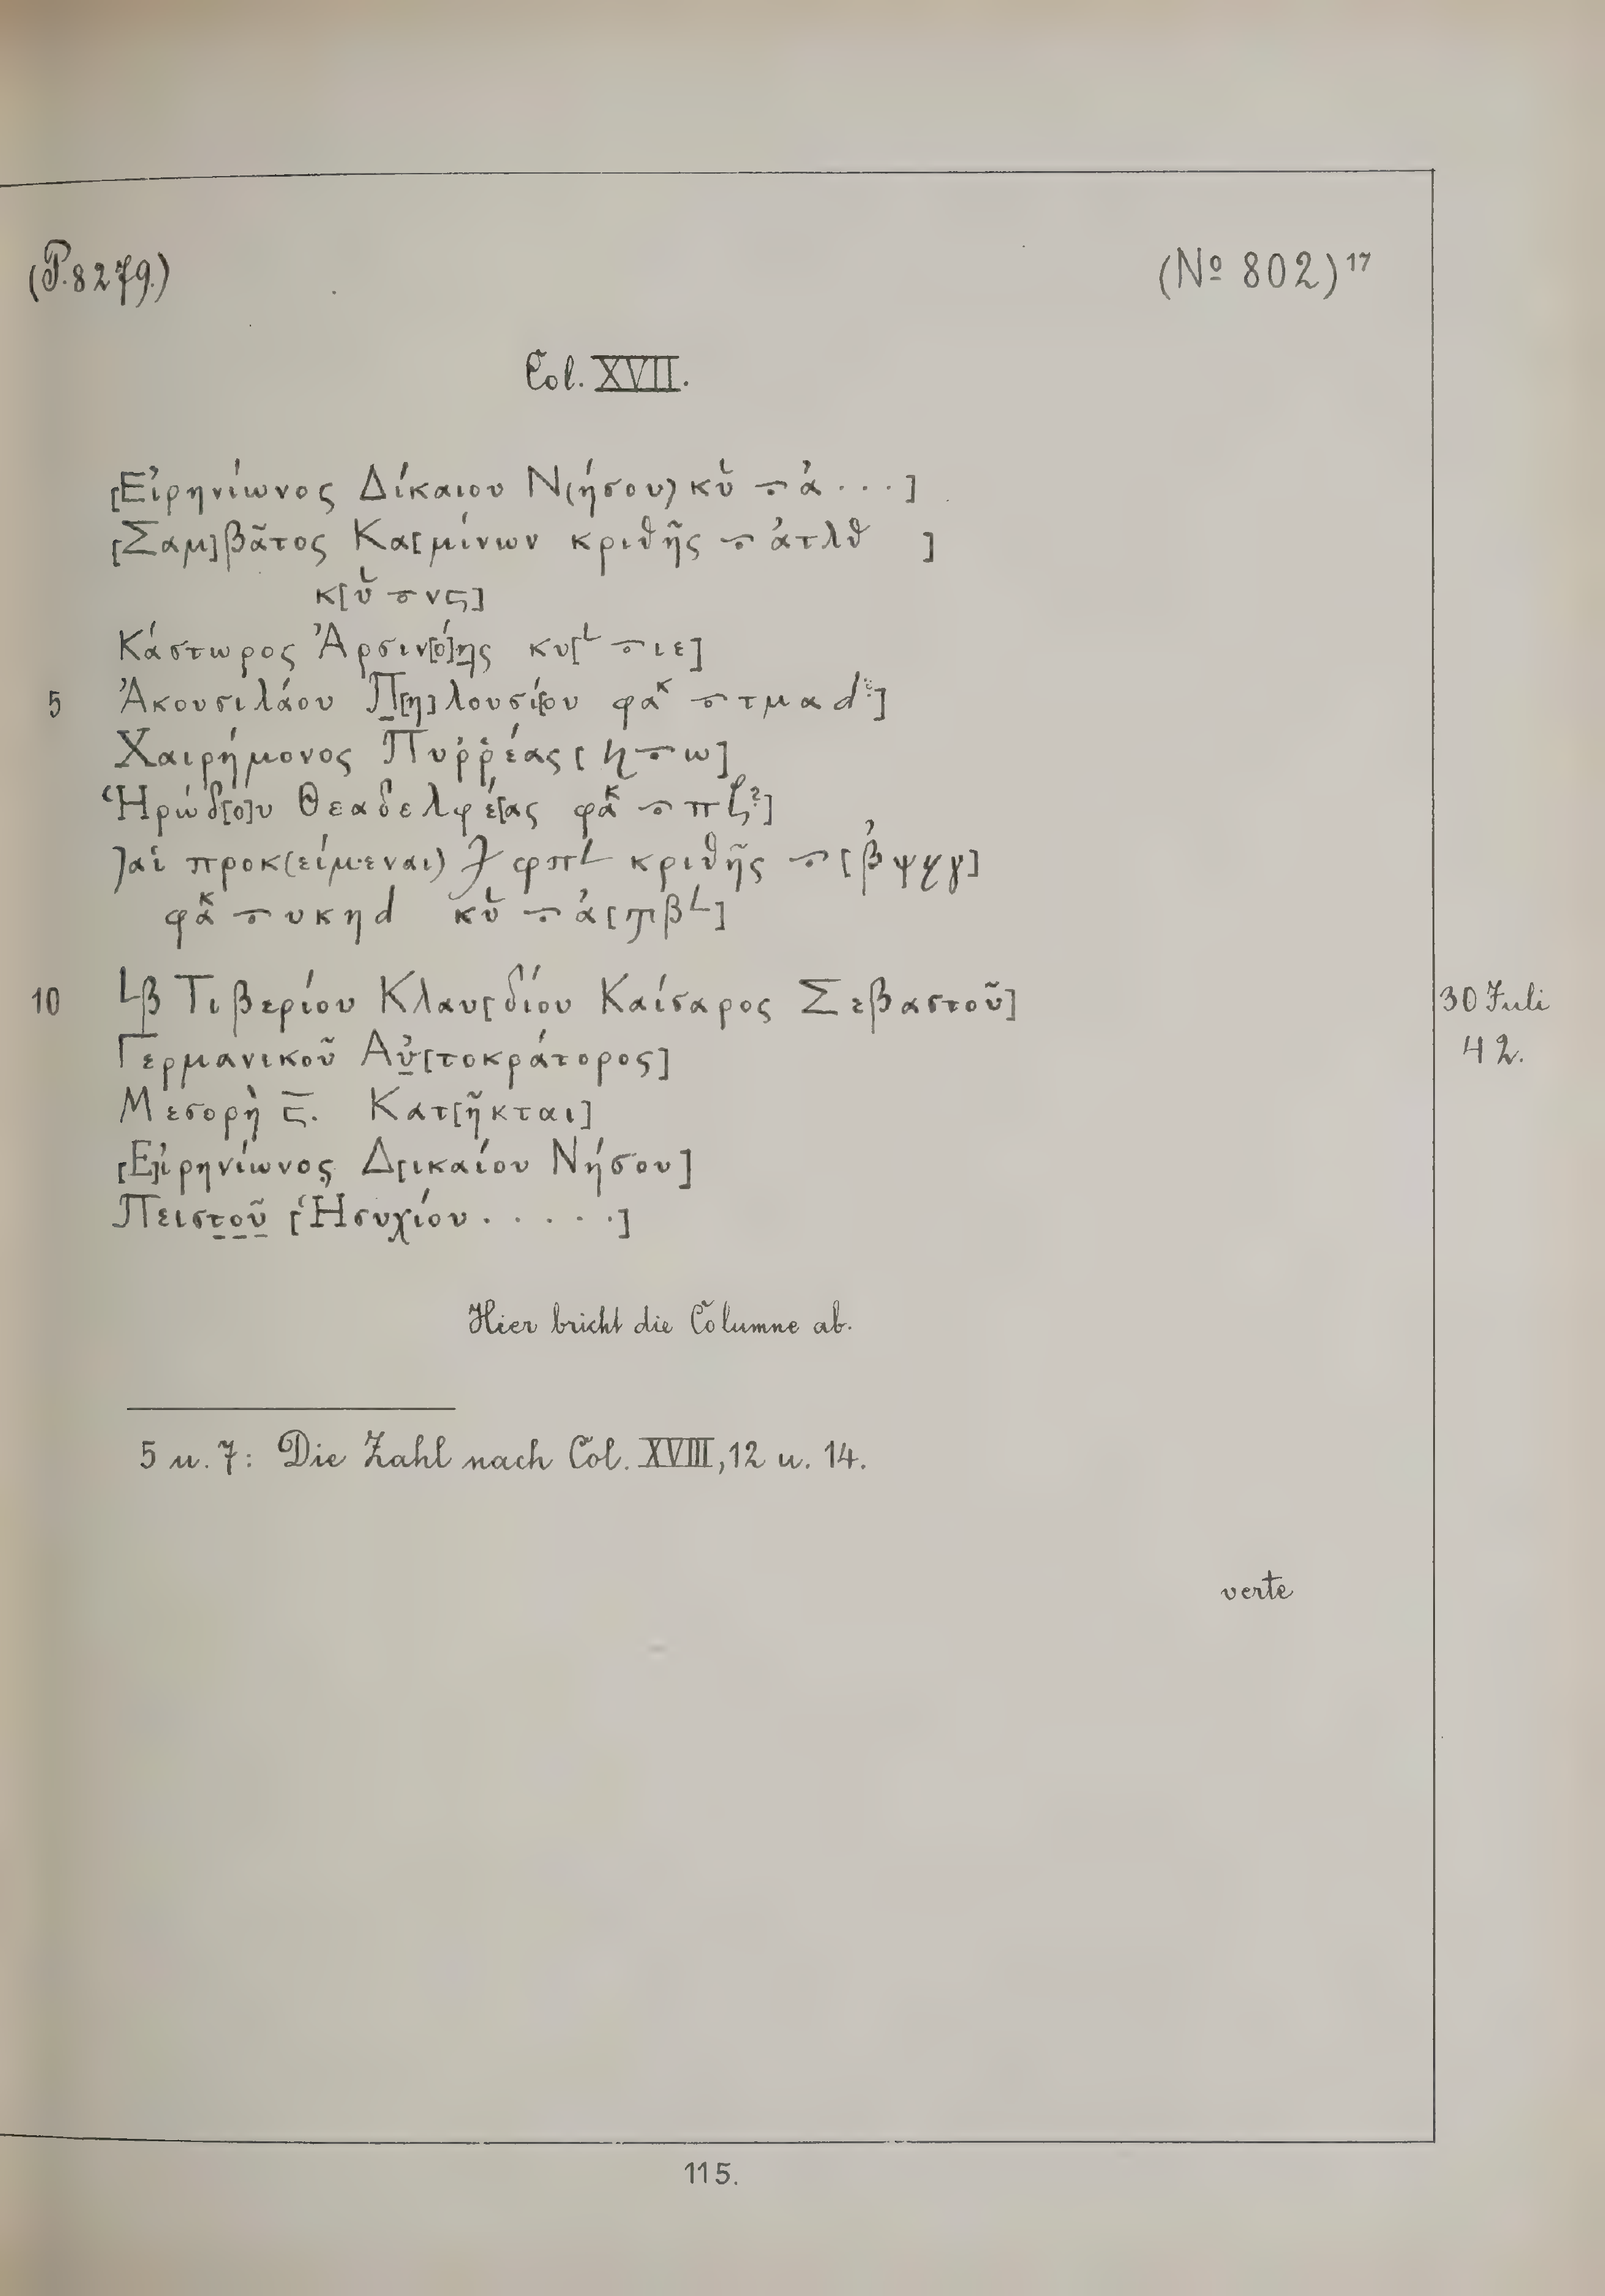 (P. 8279.)
(No 802)17
Col. XVII.
[Εἰρηνίωνος Δίκαιου Ν(ήσου) κυ͑ ⨪ ἀ . . . ]
[Σαμ]βᾶτος Κα[μίνων κριθῆς ⨪ ἀτλθ ]
κ[υ ⨪ νϛ]
Κάστωρος Ἀρσιν[ό]ης κυ[ ⨪ ιε]
5 Ἀκουσιλάου Π[η]λουσί[ου φακ ⨪ τμα d ]
Χαιρήμονος Πυῤῥέας [ ⨪ ω]
Ἡρώδ[ο]υ Θεαδελφέ[ας φακ ⨪ π ?]
]αἱ προκ(είμεναι) φπ∟ κριθῆς ⨪ [β ]
φακ ⨪ υκηd κυ ⨪ ἀ[ϡβ∟]
10 ∟β Τιβερίου Κλαυ[δίου Καίσαρος Σεβαστοῦ]
Γερμανικοῦ Αὐ[τοκράτορος]
Μεσορὴ ϛ. Κατ[ῆκται]
[Ε]ἰρηνίωνος Δ[ικαίου Νήσου]
Πειστοῦ [Ἡσυχίου . . . . .]
30 Juli
42.
Hier bricht die Columne ab.
5 u. 7: Die Zahl nach Col. XVIII, 12 u. 14.
verte
115.